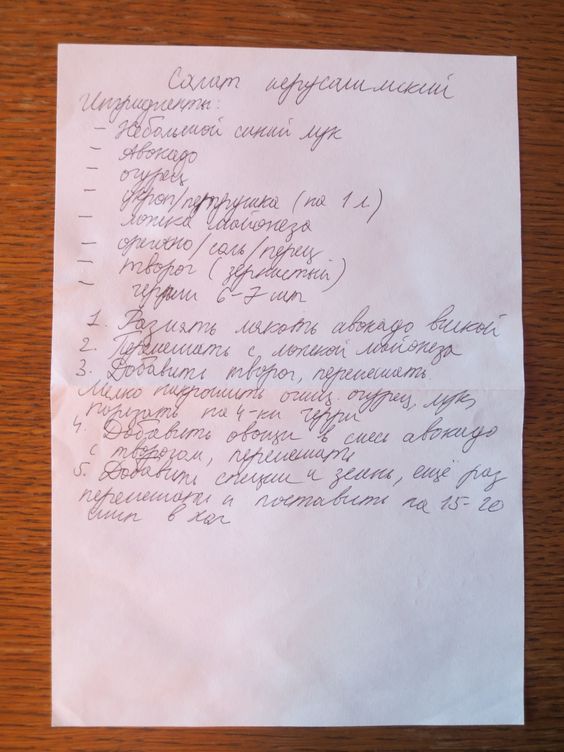 Салат иерусалимский
Ингридиенты:
- Небольшой синий лук
- Авокадо
- огурец
- укроп/петрушка (по 1 л)
- ложка майонеза
- орегано/соль/перец
- творог (зернистый)
- черри 6-7 шт
1. Размять мякоть авокадо вилкой
2. Перемешать с ложкой майонеза
3. Добавить творог, перемешать.
Мелко покрошить очищ. огурец, лук,
порезать на 4-ки черри
4. Добавить овощи в смесь авокадо
с творогом, перемешать
5. Добавить специи и зелень, ещё раз
перемешать и поставить на 15-20
мин в хол